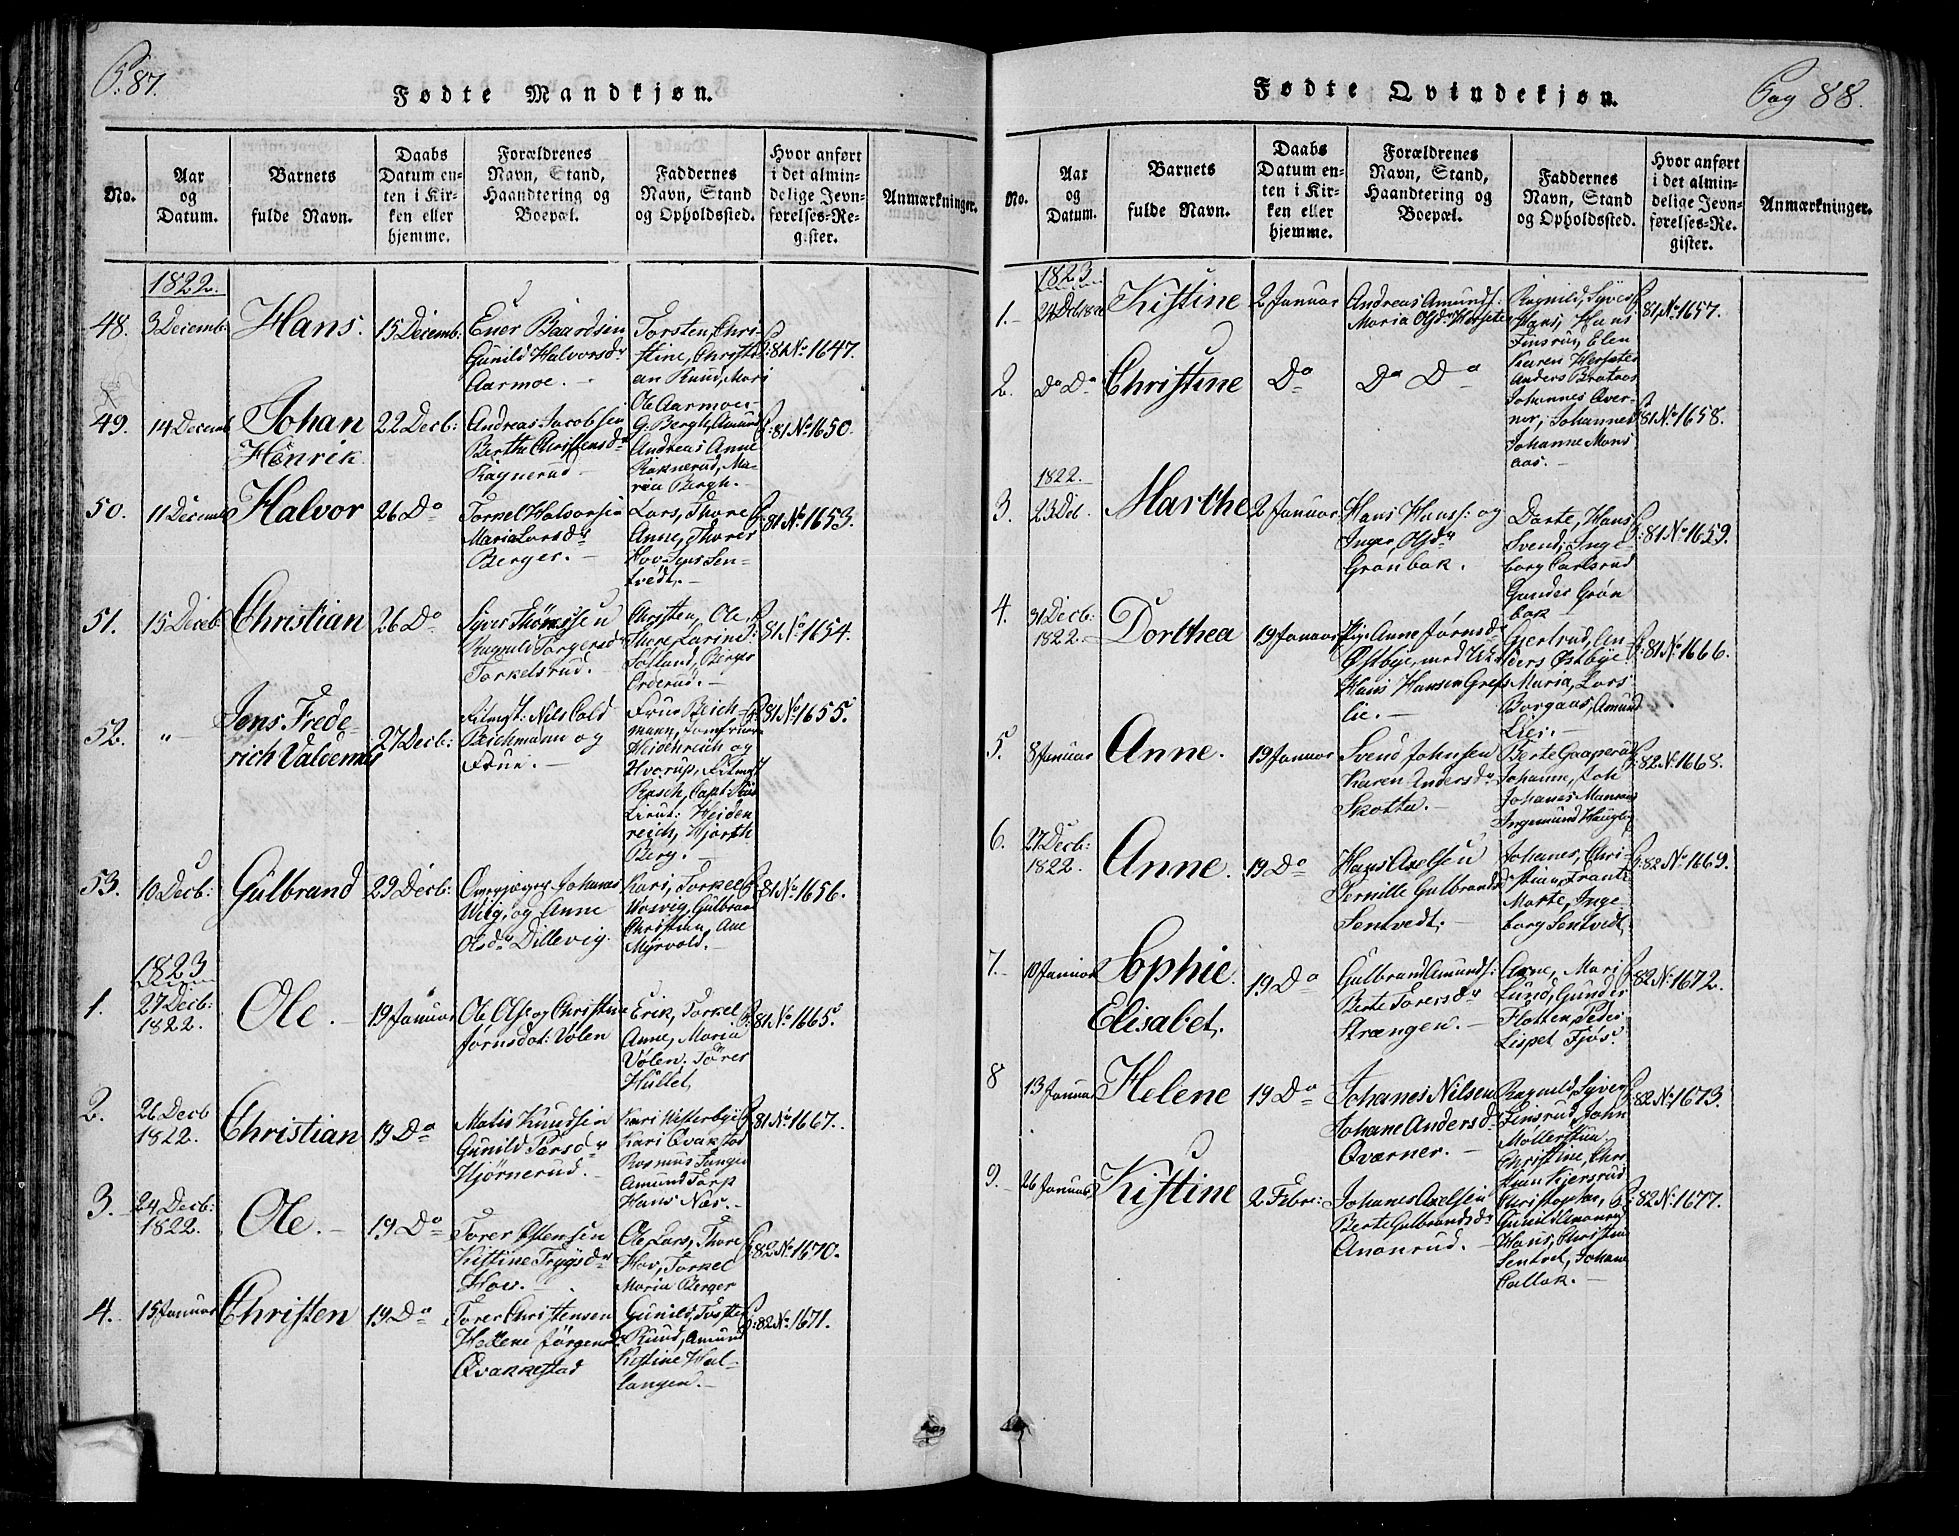 P: 87.
Fødte Mandkjøn.
No.
Aar
og
Datum.
Barnets
fulde Navn.
Daabs
Datum en-
ten i Kir-
ken eller
hjemme.
Forældrenes
Navn, Stand,
Haandtering og
Boepæl.
Faddernes
Navn, Stand
og Opholdssted.
Hvor anført
i det almin-
delige Jevn-
førelses-Re-
gister.
Anmærkninger.
1822.
48. 3 Decemb: Hans. 15 Decemb:
Gunild Halvorsdr
Aarmoe.
Torsten, Chri-
stine, Christi-
an Ruud, Mari
Ole Aarmoe
P: 81 No 1647.
49. 14 Decemb Johan
Henrik
22 Decb: Andreas Jacobsen
Berthe Christensdr
Ragnerud
G: Bergh, Amund
Andreas Anne
Raknerud, Ma-
ria Bergh.
P: 81 No 1650.
50. 11 Decemb Halvor 26 Do Torkel Halvorsen
Maria Larsdr
Berger.
Lars, Thore
Anne, Thorer
Hov, Jens Sen-
tvedt.
P: 81 No 1653.
51. 15 Deceb Christian 26 Do Syver Thomassen
Ragnild Torgersd
Torkelsrud.
Christen, Ole,
Thore, Larine
Solland, Berge
Orderud.
P: 81 No 1654.
52. " Jens Frede-
rich Valdemar
27 Decb: Ritmst: Nils Cold
Bichmann og
Frue.
Frue Bich-
mann, Jomfruer
Heidenreich og
Hvorup, Ritmst
Rasch, Capt:
Lieut: Heiden
reich, Hjorth
Berg.
P: 81 No 1655.
53. 10 Decb: Gulbrand 29 Decb: Johanes
Wiig, og Anne
Olsdr Dillevig.
Kari, Torkel
Wosvig, Gulbran
Christian, Ane
Myrvold.
P: 81 No 1656.
1823
1. 27 Decb:
1822.
Ole. 19 Januar Ole Ols: og Christine
Jørnsdot: Vølen
Erik, Torkel
Anne, Maria
Vølen, Torer
Hullet
P: 81 No 1665.
2. 26 Decb
1822.
Christian 19 Do Matis Knudsen
Gunild Persdr
Hjørnerud.
Kari Westerbye
Kari Qvakstad
Rasmus Tangen
Amund Torp
Hans Næs.
P: 81 No 1667.
3. 24 Decb:
1822.
Ole. 19 Do Torer Østensen
Kistine Trygsdr
Hov.
Ole, Lars, Thore
Hov, Torkel
Maria Berger
P: 82 No 1670.
4. 15 Januar Christen 19 Do Torer Christensen
Hellene Jørgens
Qvakkestad
Gunild, Tosten
Ruud, Amund
Kistine Hal-
langen.
P: 82 No 1671.
Pag 88.
Fødte Qvindekjøn.
No.
Aar
og
Datum.
Barnets
fulde Navn.
Daabs
Datum en-
ten i Kir-
ken eller
hjemme.
Forældrenes
Navn, Stand,
Haandtering og
Boepæl.
Faddernes
Navn, Stand
og Opholdssted.
Hvor anført
i det almin-
delige Jevn-
førelses-Re-
gister.
Anmærkninger.
1823
1. Kistine 2 Januar Andreas Amunds:
Maria Olsdr Hersete
Ragnild, Syver
Hans, Hans
Finsrud, Elen
Karen Hersæter
P: 81 No 1657.
2. Do Do Christine Do Do Do
Anders Brataas
Johannes Aver-
nor, Johannes
Johanne Mons
aas.
P: 81 No 1658.
1822.
3. 23 Dcb. Marthe 2 Januar Hans Hans: og
Inger Olsdr
Grønbak.
Dorte, Hans
Svend, Inge-
borg Carlsrud
Gunder Grøn
bak
P: 81 No 1659.
4. 31 Decb:
1822.
Dorthea 19 Januar Pige Anne Jørnsdr
Østbye, med
Hans Hansen Grefs
lie.
Gjertrud, An-
ders Østbye
Maria, Lars
Borgaas, Amund
Lier.
P: 81 No 1666.
5. 8 Januar Anne. 19 Januar Svend Johnsen
Karen Andersdr
Skotta.
Berte Gaaperud
Johanne, Joh
Johanes Mansaas
Ingemund Haugby
P: 82 No 1668.
6. 27 Decb:
1822.
Anne. 19 Do Hans Axelsen
Pernille Gulbrandsd
Sentvedt.
Johanes, Chri-
stian, Frants
Marte, Inge-
borg Sentvedt.
P: 82 No 1669.
7. 10 Januar Sophie
Elisabet.
19 Do Gulbrand Amunds:
Berte Torersdr
Strængen.
Anne, Mari
Lund, Gunder
Flotten, Peder
Lispet Fjøs.
P: 82 No 1672.
8 13 Januar Helene 19 Do Johanes Nilsen
Johane Andersd
Qværner.
Ragnild, Syver
Finsrud, John
Møllerstua
Christine, Chr
Kjersrud
P: 82 No 1673.
9. 26 Januar Kistine 2 Febr: Johanes Axelsen
Berte Gulbrandsdr
Ananrud.
Christopher,
Gunild Ananrud
Hans, Christian
Sentvet, Johane
Callak.
P: 82 No 1677.